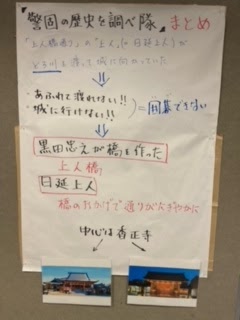 『警固の歴史を調べ隊』まとめ
「上人橋通り」の"上人"(=日延上人)が
どう川を渡って城に向かっていた
・あふれて渡れない!!
・城に行けない!!
)=困ってできない
黒田忠之が橋を作った
上人橋
日延上人
橋のおかげで通りがにぎやかに
中心は香正寺